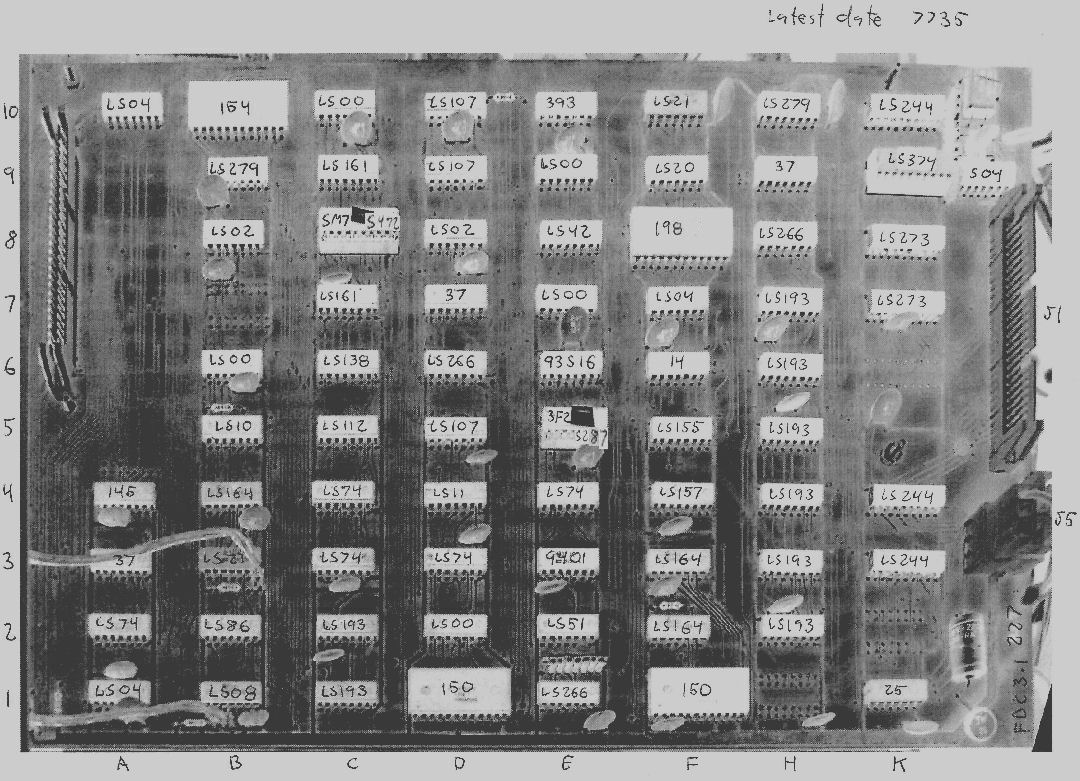 Latest date 7735
10 LS04 154 LS00 LS107 393 LS21 LS279 LS244
9 LS279 LS161 LS107 LS00 LS20 37 LS374 S04
8 LS02 SM7 S472 LS02 LS42 198 LS266 LS273
7 LS161 37 LS00 LS04 LS193 LS273 J1
6 LS00 LS138 LS266 93S16 14 LS193
5 LS10 LS112 LS107 3F2 S287 LS155 LS193
4 145 LS164 LS74 LS11 LS74 LS157 LS193 LS244 J5
3 37 LS74 LS74 9401 LS164 LS193 LS244
2 LS74 LS86 LS193 LS00 LS51 LS164 LS193
1 LS04 LS08 LS193 150 LS266 150 25
FDC3.1 227
A B C D E F H K